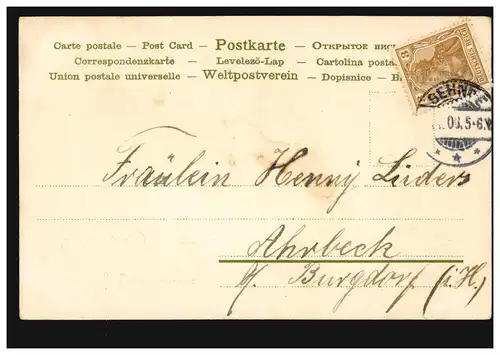 Carte postale — Post Card — Postkarte — Открытое
Correspondenzkarte — Levelező-Lap — Cartolina
Union postale universelle — Weltpostverein — Dopisnice —
SEHNDE
5-6.
Fräulein Henny Lüders
Ahrbeck
b/ Burgdorf (i. H.)